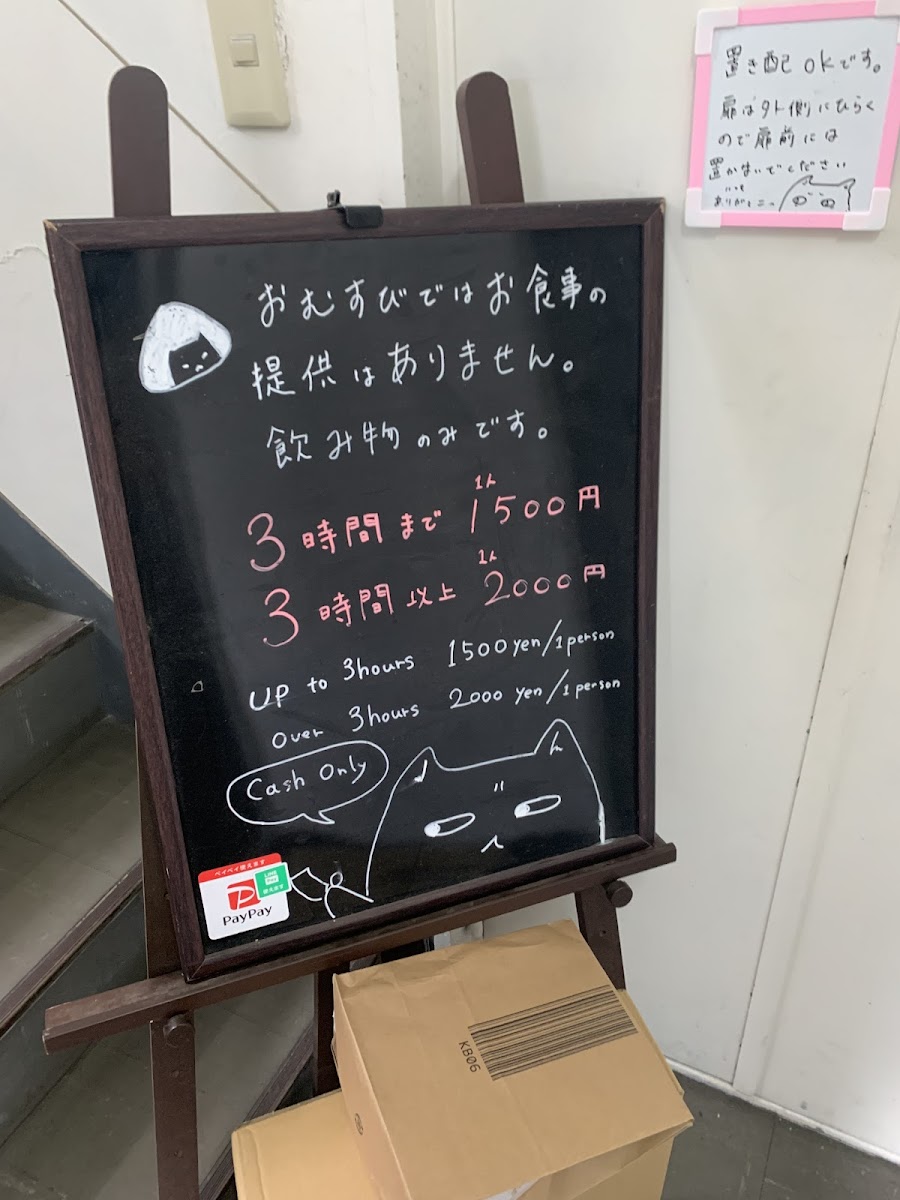 おむすびではお食事の
提供はありません。
飲み物のみです。
1人
3時間まで 1500円
1人
3時間以上 2000円
UP to 3hours 1500 yen/1person
over 3hours 2000 yen/1person
Cash Only
ペイペイ使えます
LINE
Pay
使えます
PayPay
置き配okです。
扉は外側にひらく
ので扉前には
置かないでください
いつも
ありがとニャ
KB06